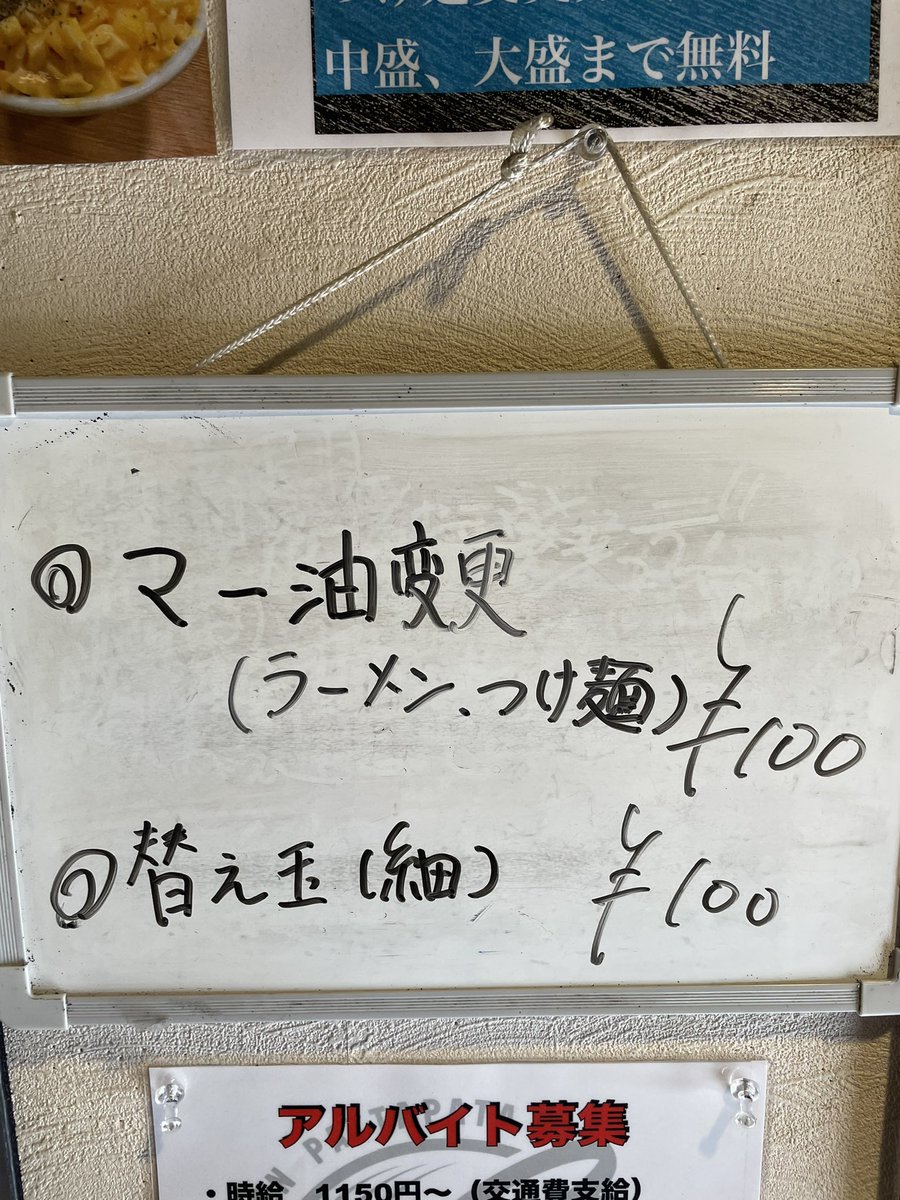 中盛、大盛まで無料
◎マー油変更
(ラーメン、つけ麺) ¥100
◎替え玉(細) ¥100
アルバイト募集
・時給 1150円〜(交通費支給)